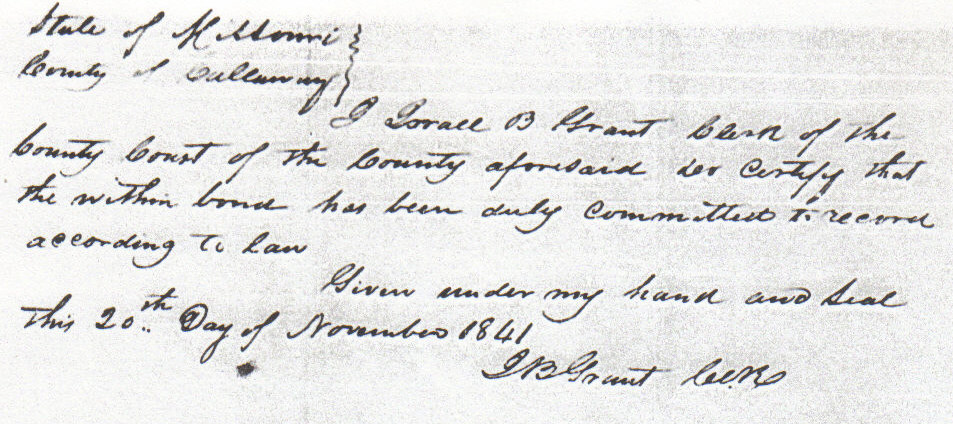 State of Missouri }
County of Callaway }
I Israel B Grant Clerk of the
County Court of the County aforesaid do certify that
the within bond has been duly committed to record
according to law
Given under my hand and seal
this 20th Day of November 1841
I B Grant Clk